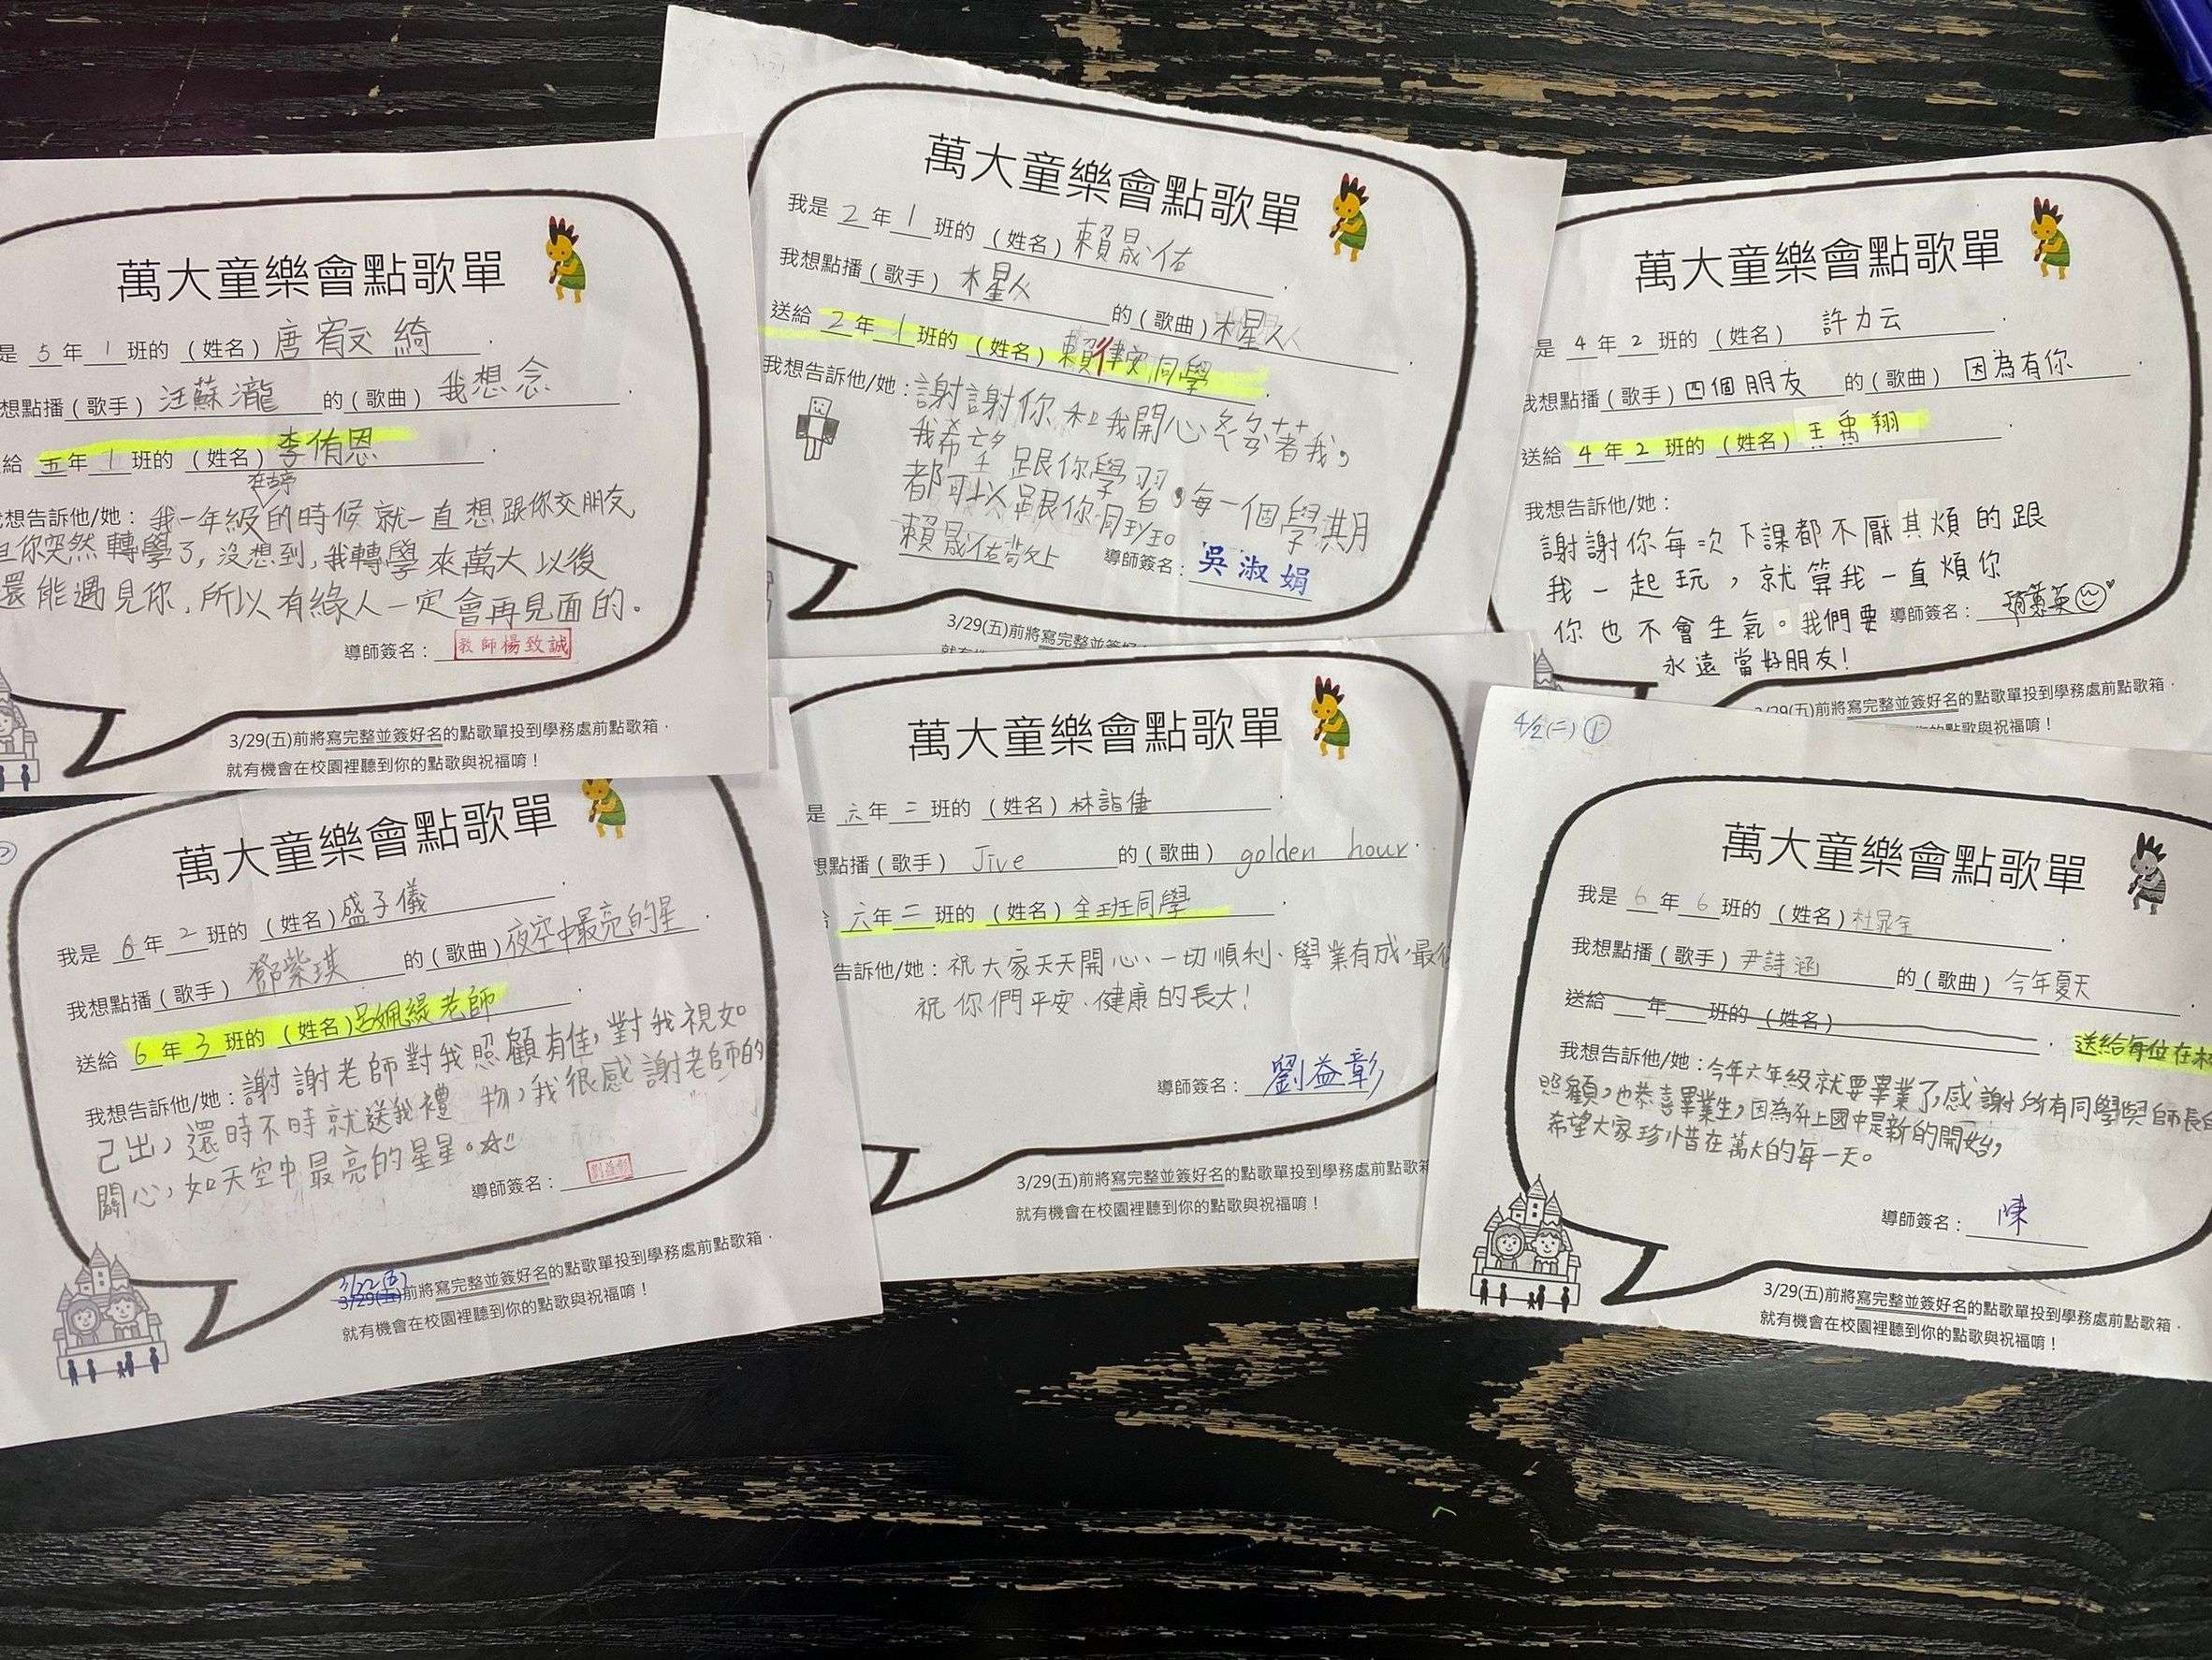 萬大童樂會點歌單
是 5 年 1 班的 (姓名) 唐宥文綺
想點播(歌手) 汪蘇瀧 的(歌曲) 我想念
給 五年 1 班的 (姓名) 李侑恩
想告訴他/她：我一年級的時候就一直想跟你交朋友
但你突然轉學了,沒想到,我轉學來萬大以後
還能遇見你,所以有緣人一定會再見面的。
導師簽名：教師楊致誠
3/29(五)前將寫完整並簽好名的點歌單投到學務處前點歌箱．
就有機會在校園裡聽到你的點歌與祝福唷！
萬大童樂會點歌單
我是 2 年 1 班的 (姓名) 賴晟佑 ．
我想點播(歌手) 木星人 的(歌曲) 木星人 ．
送給 2 年 1 班的 (姓名) 賴律安同學 ．
我想告訴他/她：謝謝你和我開心
我希望跟你學習，每一個學期
都可以跟你同班。
賴晟佑敬上 導師簽名：吳淑娟
3/29(五)前將寫完整並簽好
萬大童樂會點歌單
是 4 年 2 班的 (姓名) 許力云 ．
我想點播(歌手) 四個朋友 的(歌曲) 因為有你 ．
送給 4 年 2 班的 (姓名) 王禹翔 ．
我想告訴他/她：
謝謝你每次下課都不厭其煩的跟
我一起玩，就算我一直煩你
你也不會生氣。我們要
永遠當好朋友！
導師簽名：趙蕙英
3/29(五)前將寫完整並簽好名的點歌單投到學務處前點歌箱．
你的點歌與祝福唷！
萬大童樂會點歌單
我是 6 年 2 班的 (姓名) 盛子儀 ．
我想點播(歌手) 鄧紫琪 的(歌曲) 夜空中最亮的星 ．
送給 6 年 3 班的 (姓名) 呂姵緹老師
我想告訴他/她：謝謝老師對我照顧有佳，對我視如
己出，還時不時就送我禮物，我很感謝老師的
關心，如天空中最亮的星星。
導師簽名：劉益彰
3/22(五)
3/29(五)前將寫完整並簽好名的點歌單投到學務處前點歌箱．
就有機會在校園裡聽到你的點歌與祝福唷！
萬大童樂會點歌單
是 六年 二 班的 (姓名) 林詣倢 ．
想點播(歌手) Jive 的(歌曲) golden hour ．
給 六年 二 班的 (姓名) 全班同學 ．
告訴他/她：祝大家天天開心、一切順利、學業有成,最後
祝你們平安、健康的長大！
導師簽名：劉益彰
3/29(五)前將寫完整並簽好名的點歌單投到學務處前點歌箱
就有機會在校園裡聽到你的點歌與祝福唷！
4/2(二) ①
萬大童樂會點歌單
我是 6 年 6 班的 (姓名) 杜 ．
我想點播(歌手) 尹詩涵 的(歌曲) 今年夏天 ．
送給 年 班的 (姓名) ． 送給每位在
我想告訴他/她：今年六年級就要畢業了,感謝所有同學與師長的
照顧，也恭喜畢業生，因為升上國中是新的開始，
希望大家珍惜在萬大的每一天。
導師簽名：陳
3/29(五)前將寫完整並簽好名的點歌單投到學務處前點歌箱．
就有機會在校園裡聽到你的點歌與祝福唷！